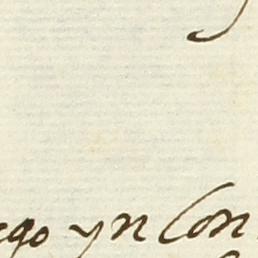 ego yn Con